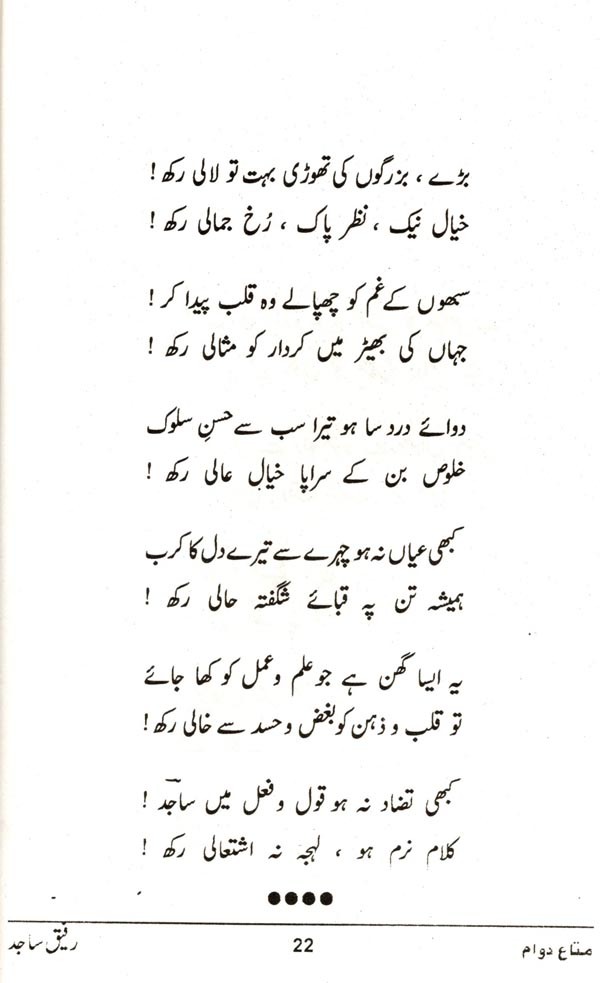 بڑے ، بزرگوں کی تھوڑی بہت تو لالی رکھ !
خیال نیک ، نظر پاک ، رُخ جمالی رکھ !
سبھوں کے غم کو چھپالے وہ قلب پیدا کر !
جہاں کی بھیڑ میں کردار کو مثالی رکھ !
دوائے درد سا ہو تیرا سب سے حسنِ سلوک
خلوص بن کے سراپا خیال عالی رکھ !
کبھی عیاں نہ ہو چہرے سے تیرے دل کا کرب
ہمیشہ تن پہ قبائے شگفتہ حالی رکھ !
یہ ایسا گھن ہے جو علم و عمل کو کھا جائے
تو قلب و ذہن کو بغض و حسد سے خالی رکھ !
کبھی تضاد نہ ہو قول و فعل میں ساجدؔ !
کلام نرم ہو ، لہجہ نہ اشتعالی رکھ !
متاع دوام 22 رفیق ساجد